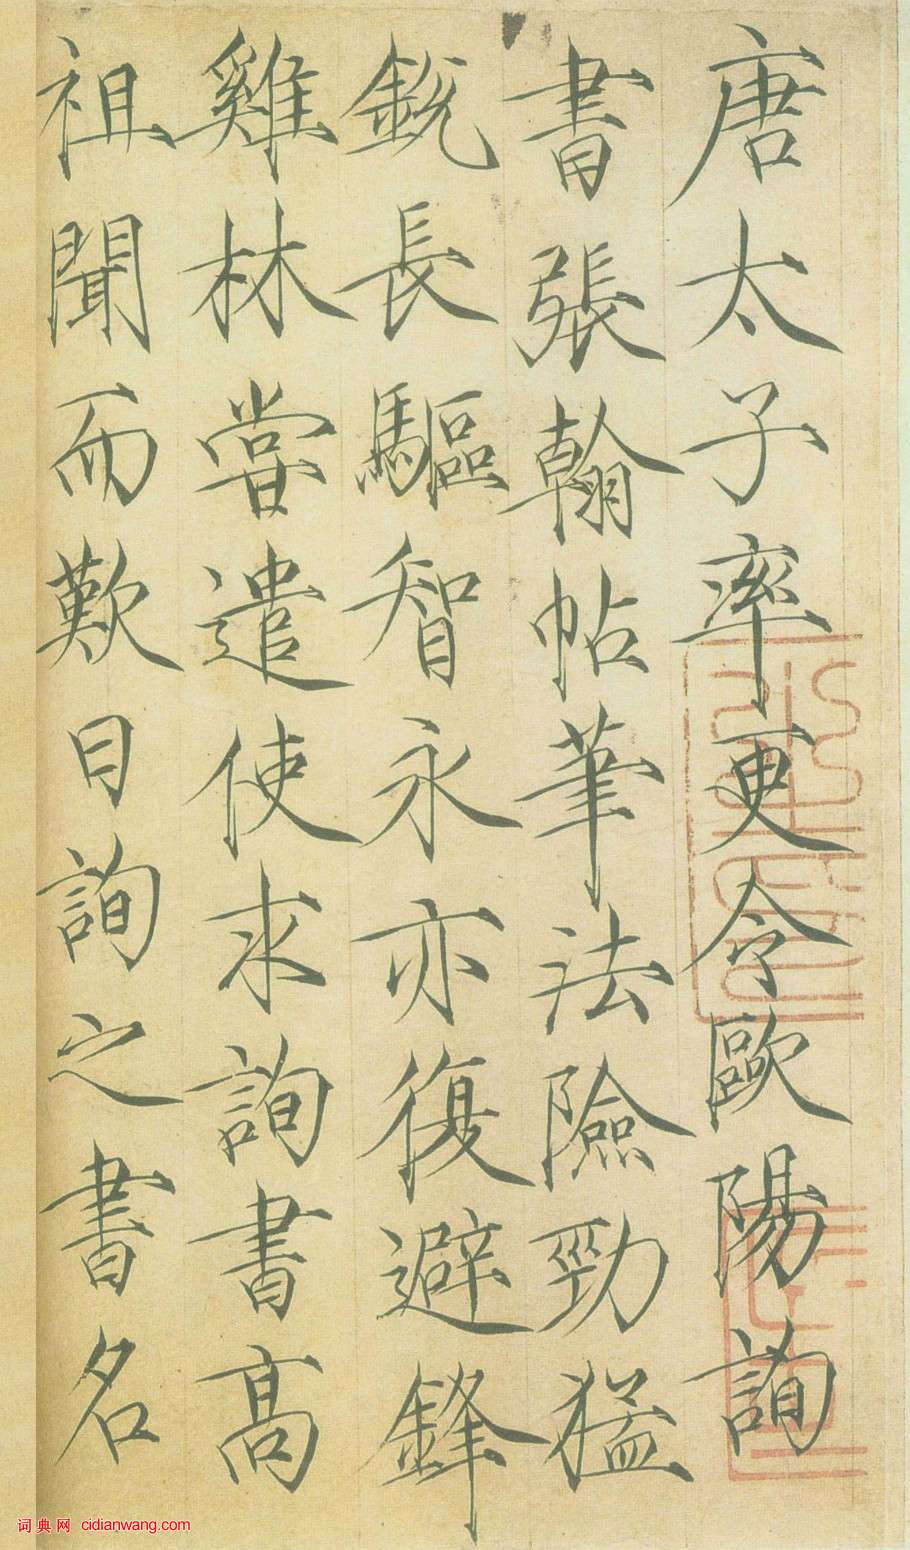 唐太子率更令歐陽詢
書張翰帖筆法險勁猛
銳長驅智永亦復避鋒
雞林嘗遣使求詢書高
祖聞而歎曰詢之書名
词典网 cidianwang.com